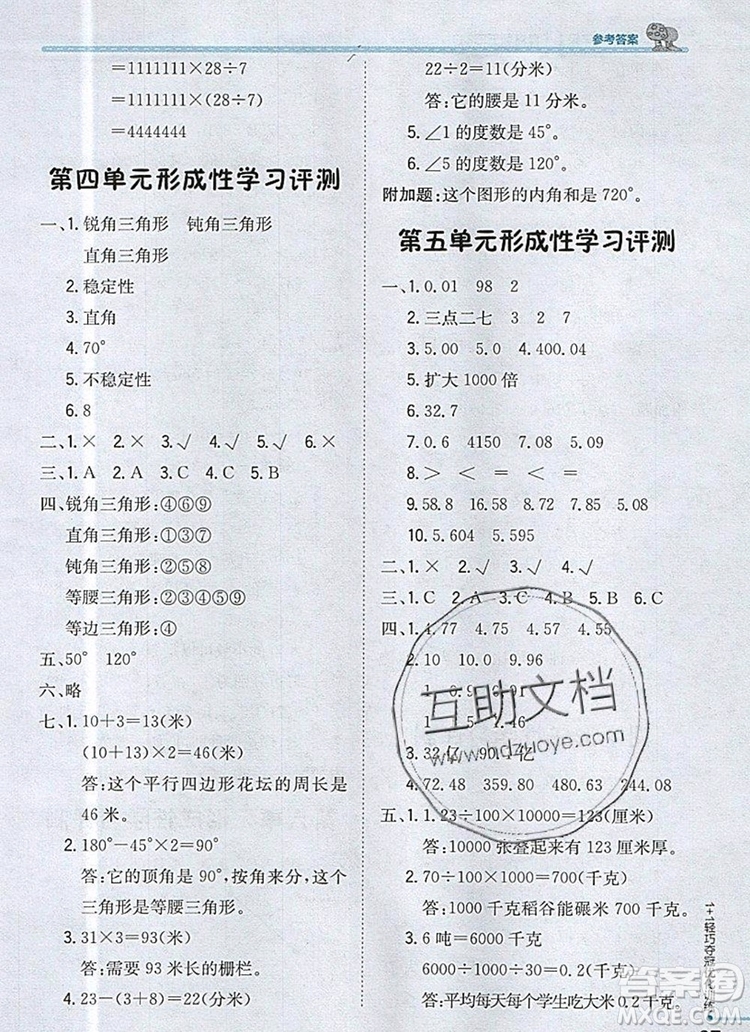 参考答案
=1111111×28÷7
=1111111×(28÷7)
=4444444
第四单元形成性学习评测
一、1.锐角三角形 钝角三角形
直角三角形
2.稳定性
3.直角
4.70°
5.不稳定性
6.8
二、1.× 2.× 3.√ 4.√ 5.√ 6.×
三、1.A 2.A 3.C 4.C 5.B
四、锐角三角形:④⑥⑨
直角三角形:①③⑦
钝角三角形:②⑤⑧
等腰三角形:①④⑤⑨
等边三角形:④
五、50° 120°
六、略
七、1.10+3=13(米)
(10+13)×2=46(米)
答:这个平行四边形花坛的周长是
46米。
2.180°-45°×2=90°
答:它的顶角是90°,这个三角尺的
三角形是等腰三角形。
3.
答:需要93米长的栅栏。
4.24-(3+8+2)=11(分米)
22÷2=11(分米)
答:它的腰是11分米。
5.∠1的度数是45°。
6.∠5的度数是120°。
附加题:这个图形的内角和是720°。
第五单元形成性学习评测
一、1.0.01 98 2
2.三点二七 3 2 7
3.5.00 5.0 4.400.04
5.扩大1000倍
6.32.7
7.0.6 4150 7.08 5.09
8.> < = <
9.58.8 16.58 8.727 58.85
10.5.604 5.595
二、1.× 2.√ 3.√ 4.√
三、1.C 2.A 3.C 4.B 5.A
四、1.4.77 4.75 4.57 4.55
2.10 10.0 9.96
1 0.9 0.91
1 2.5 2.46
3.32亿 90.1亿
4.72.24 359.80 480.63 244.58
五、1.1.23÷100×10000=123(厘米)
答:10000张叠起来有123厘米高。
2.70÷100×1000=700(千克)
答:1000千克稻谷能碾米700千克。
3.6吨=6000千克
6000÷1000÷30=0.2(千克)
答:平均每天每个学生吃大米0.2千克。
1+1轻巧夺冠优化训练
互助文档
答案圈
MXQE.COM